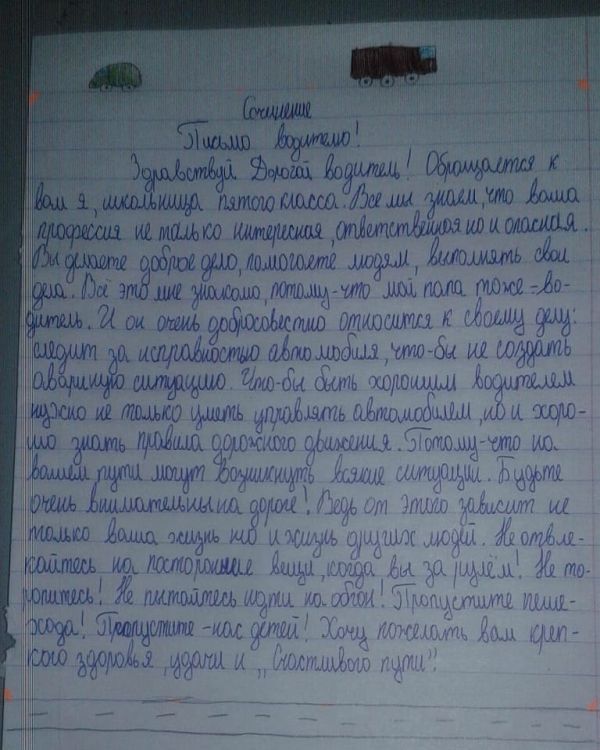 Сочинение
Письмо водителю!
Здравствуй Дорогой водитель! Обращается к
вам я, школьница пятого класса. Все мы знаем, что ваша
профессия не только интересная, ответственная но и опасная.
Вы делаете доброе дело, помогаете людям, выполнять свои
дела. Всё это мне знакомо, потому-что мой папа тоже -во-
дитель. И он очень добросовестно относится к своему делу:
следит за исправностью автомобиля, что-бы не создать
аварийную ситуацию. Что-бы быть хорошим водителем
нужно не только уметь управлять автомобилем, но и хоро-
шо знать правила дорожного движения. Потому-что на
вашем пути могут возникнуть всякие ситуации. Будьте
очень внимательны на дороге! Ведь от этого зависит не
только ваша жизнь но и жизнь других людей. Не отвле-
кайтесь на посторонние вещи, когда вы за рулём! Не то-
ропитесь! Не пытайтесь идти на обгон! Пропустите пеше-
хода! Пропустите -нас детей! Хочу пожелать вам креп-
кого здоровья, удачи и ,, Счастливого пути"!